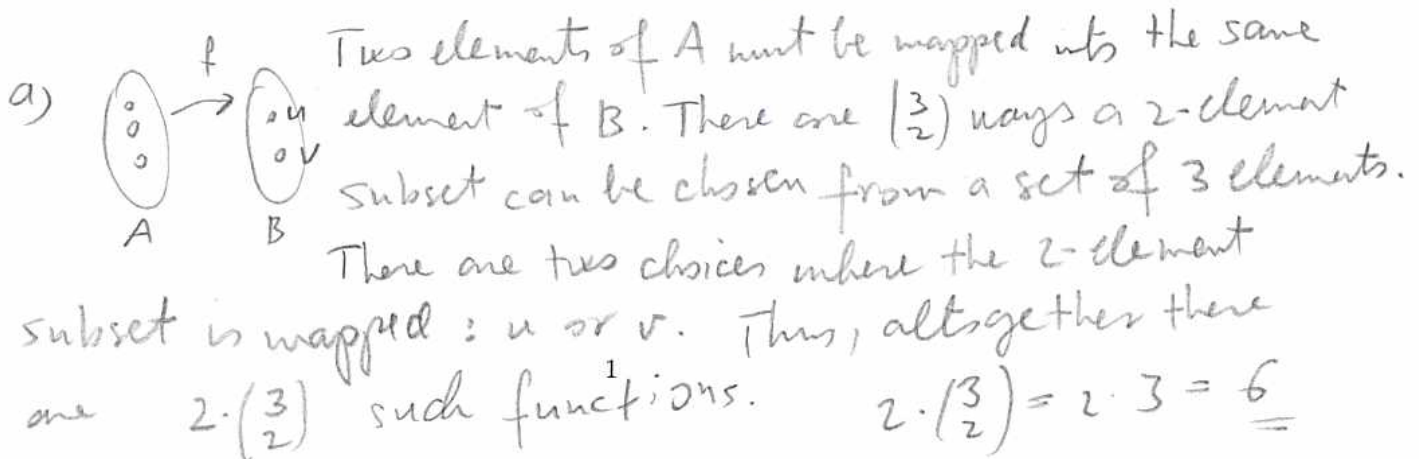 f Two elements of A must be mapped into the same
a) u element of B. There are (3 2) ways a 2-element
v subset can be chosen from a set of 3 elements.
A B
There are two choices where the 2-element
subset is mapped : u or v. Thus, altogether there
1
are 2·(3 2) such functions. 2·(3 2) = 2·3 = 6